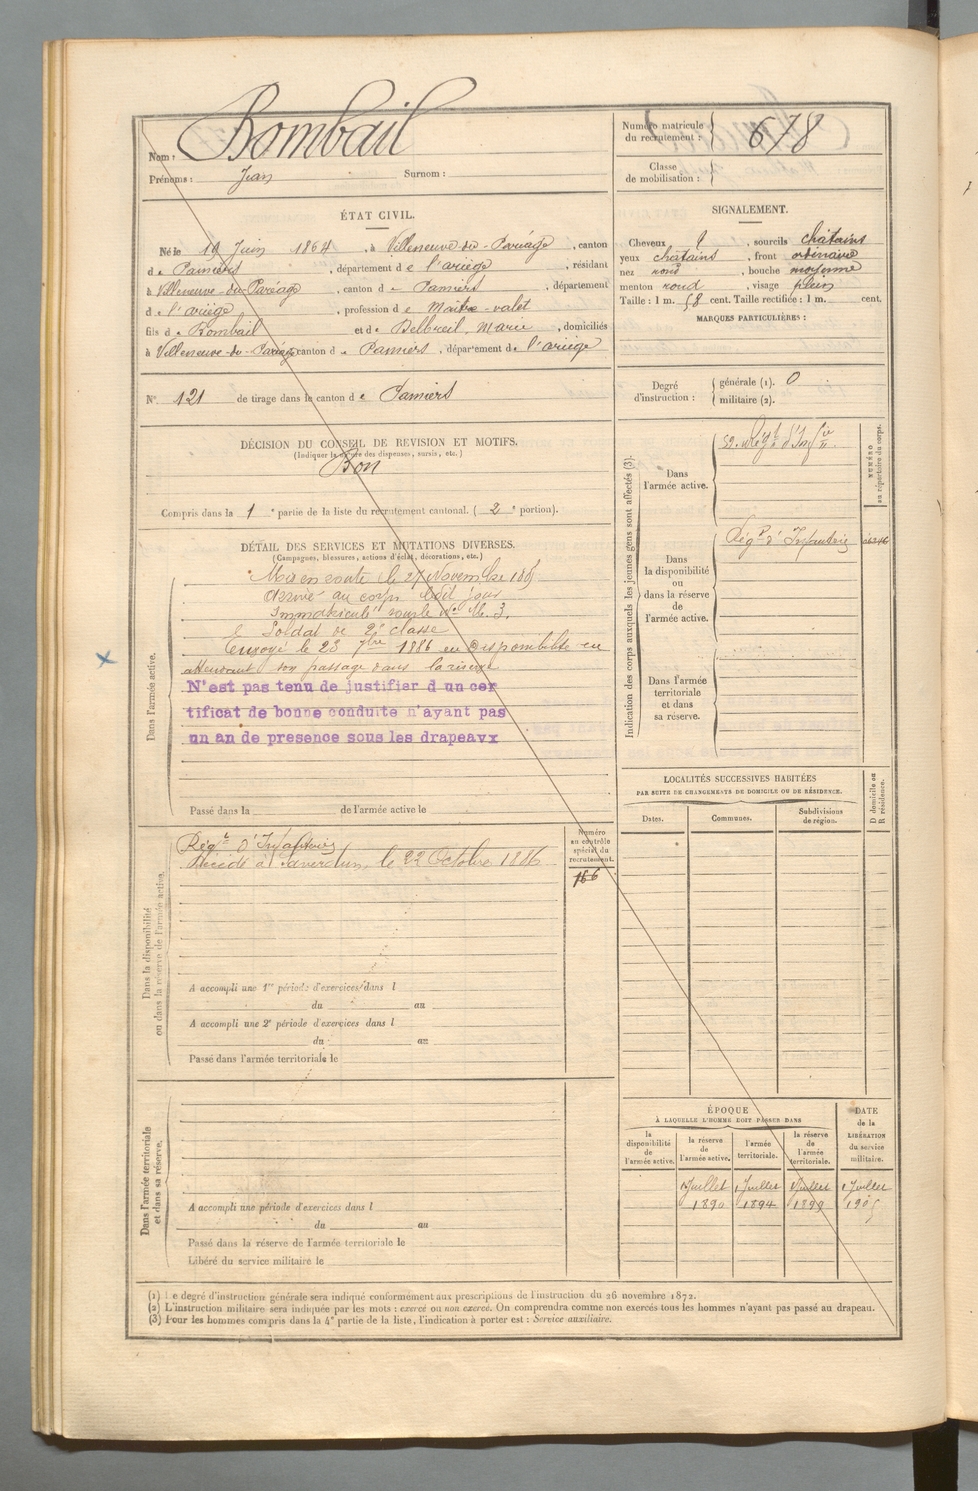 Nom : Bombail
Prénoms : Jean Surnom :
Numéro matricule du recrutement : 678
Classe de mobilisation :
ÉTAT CIVIL.
Né le 19 Juin 1864, à Villeneuve-du-Pariage, canton
de Pamiers, département de l'ariège, résidant
à Villeneuve-du-Pariage, canton de Pamiers, département
de l'ariège, profession de Maitre-valet
fils de Bombail et de Delbreil, Marie, domiciliés
à Villeneuve-du-Pariage canton de Pamiers, département de l'ariège
N° 121 de tirage dans le canton de Pamiers
SIGNALEMENT.
Cheveux, sourcils chatains
yeux chatains, front ordinaire
nez rond, bouche moyenne
menton rond, visage plein
Taille : 1 m. 58 cent. Taille rectifiée : 1 m. cent.
MARQUES PARTICULIÈRES :
Degré d'instruction : générale (1). 0
militaire (2).
DÉCISION DU CONSEIL DE REVISION ET MOTIFS.
(Indiquer la nature des dispenses, sursis, etc.)
Bon
Compris dans la 1e partie de la liste du recrutement cantonal. (2e portion).
DÉTAIL DES SERVICES ET MUTATIONS DIVERSES.
(Campagnes, blessures, actions d'éclat, décorations, etc.)
Dans l'armée active.
Mis en route le 27 Novembre 1885
Arrivé au corps ledit jour
Immatriculé sous le N°
Soldat de 2e classe
Envoyé le 23 7bre 1886 en Disponibilité en
attendant son passage dans la réserve
N'est pas tenu de justifier d un cer
tificat de bonne conduite n'ayant pas
un an de presence sous les drapeaux
Passé dans la de l'armée active le
Indication des corps auxquels les jeunes gens sont affectés (3).
NUMÉRO au répertoire du corps.
Dans l'armée active.
59e Régt d'Infie
Dans la disponibilité ou dans la réserve de l'armée active.
Régt d'Infanterie
Dans l'armée territoriale et dans sa réserve.
LOCALITÉS SUCCESSIVES HABITÉES
PAR SUITE DE CHANGEMENTS DE DOMICILE OU DE RÉSIDENCE.
D domicile ou R résidence.
Dates. Communes. Subdivisions de région.
Dans la disponibilité ou dans la réserve de l'armée active.
Régt d'Infanterie
Décédé à Saverdun, le 22 Octobre 1886
Numéro au contrôle spécial du recrutement.
166
A accompli une 1re période d'exercices dans l
du au
A accompli une 2e période d'exercices dans l
du au
Passé dans l'armée territoriale le
Dans l'armée territoriale et dans sa réserve.
A accompli une période d'exercices dans l
du au
Passé dans la réserve de l'armée territoriale le
Libéré du service militaire le
ÉPOQUE
À LAQUELLE L'HOMME DOIT PASSER DANS
DATE de la LIBÉRATION du service militaire.
la disponibilité de l'armée active. la réserve de l'armée active. l'armée territoriale. la réserve de l'armée territoriale.
1 Juillet 1 Juillet 1 Juillet 1 Juillet
1890 1894 1899 1905
(1) Le degré d'instruction générale sera indiqué conformément aux prescriptions de l'instruction du 26 novembre 1872.
(2) L'instruction militaire sera indiquée par les mots : exercé ou non exercé. On comprendra comme non exercés tous les hommes n'ayant pas passé au drapeau.
(3) Pour les hommes compris dans la 4e partie de la liste, l'indication à porter est : Service auxiliaire.